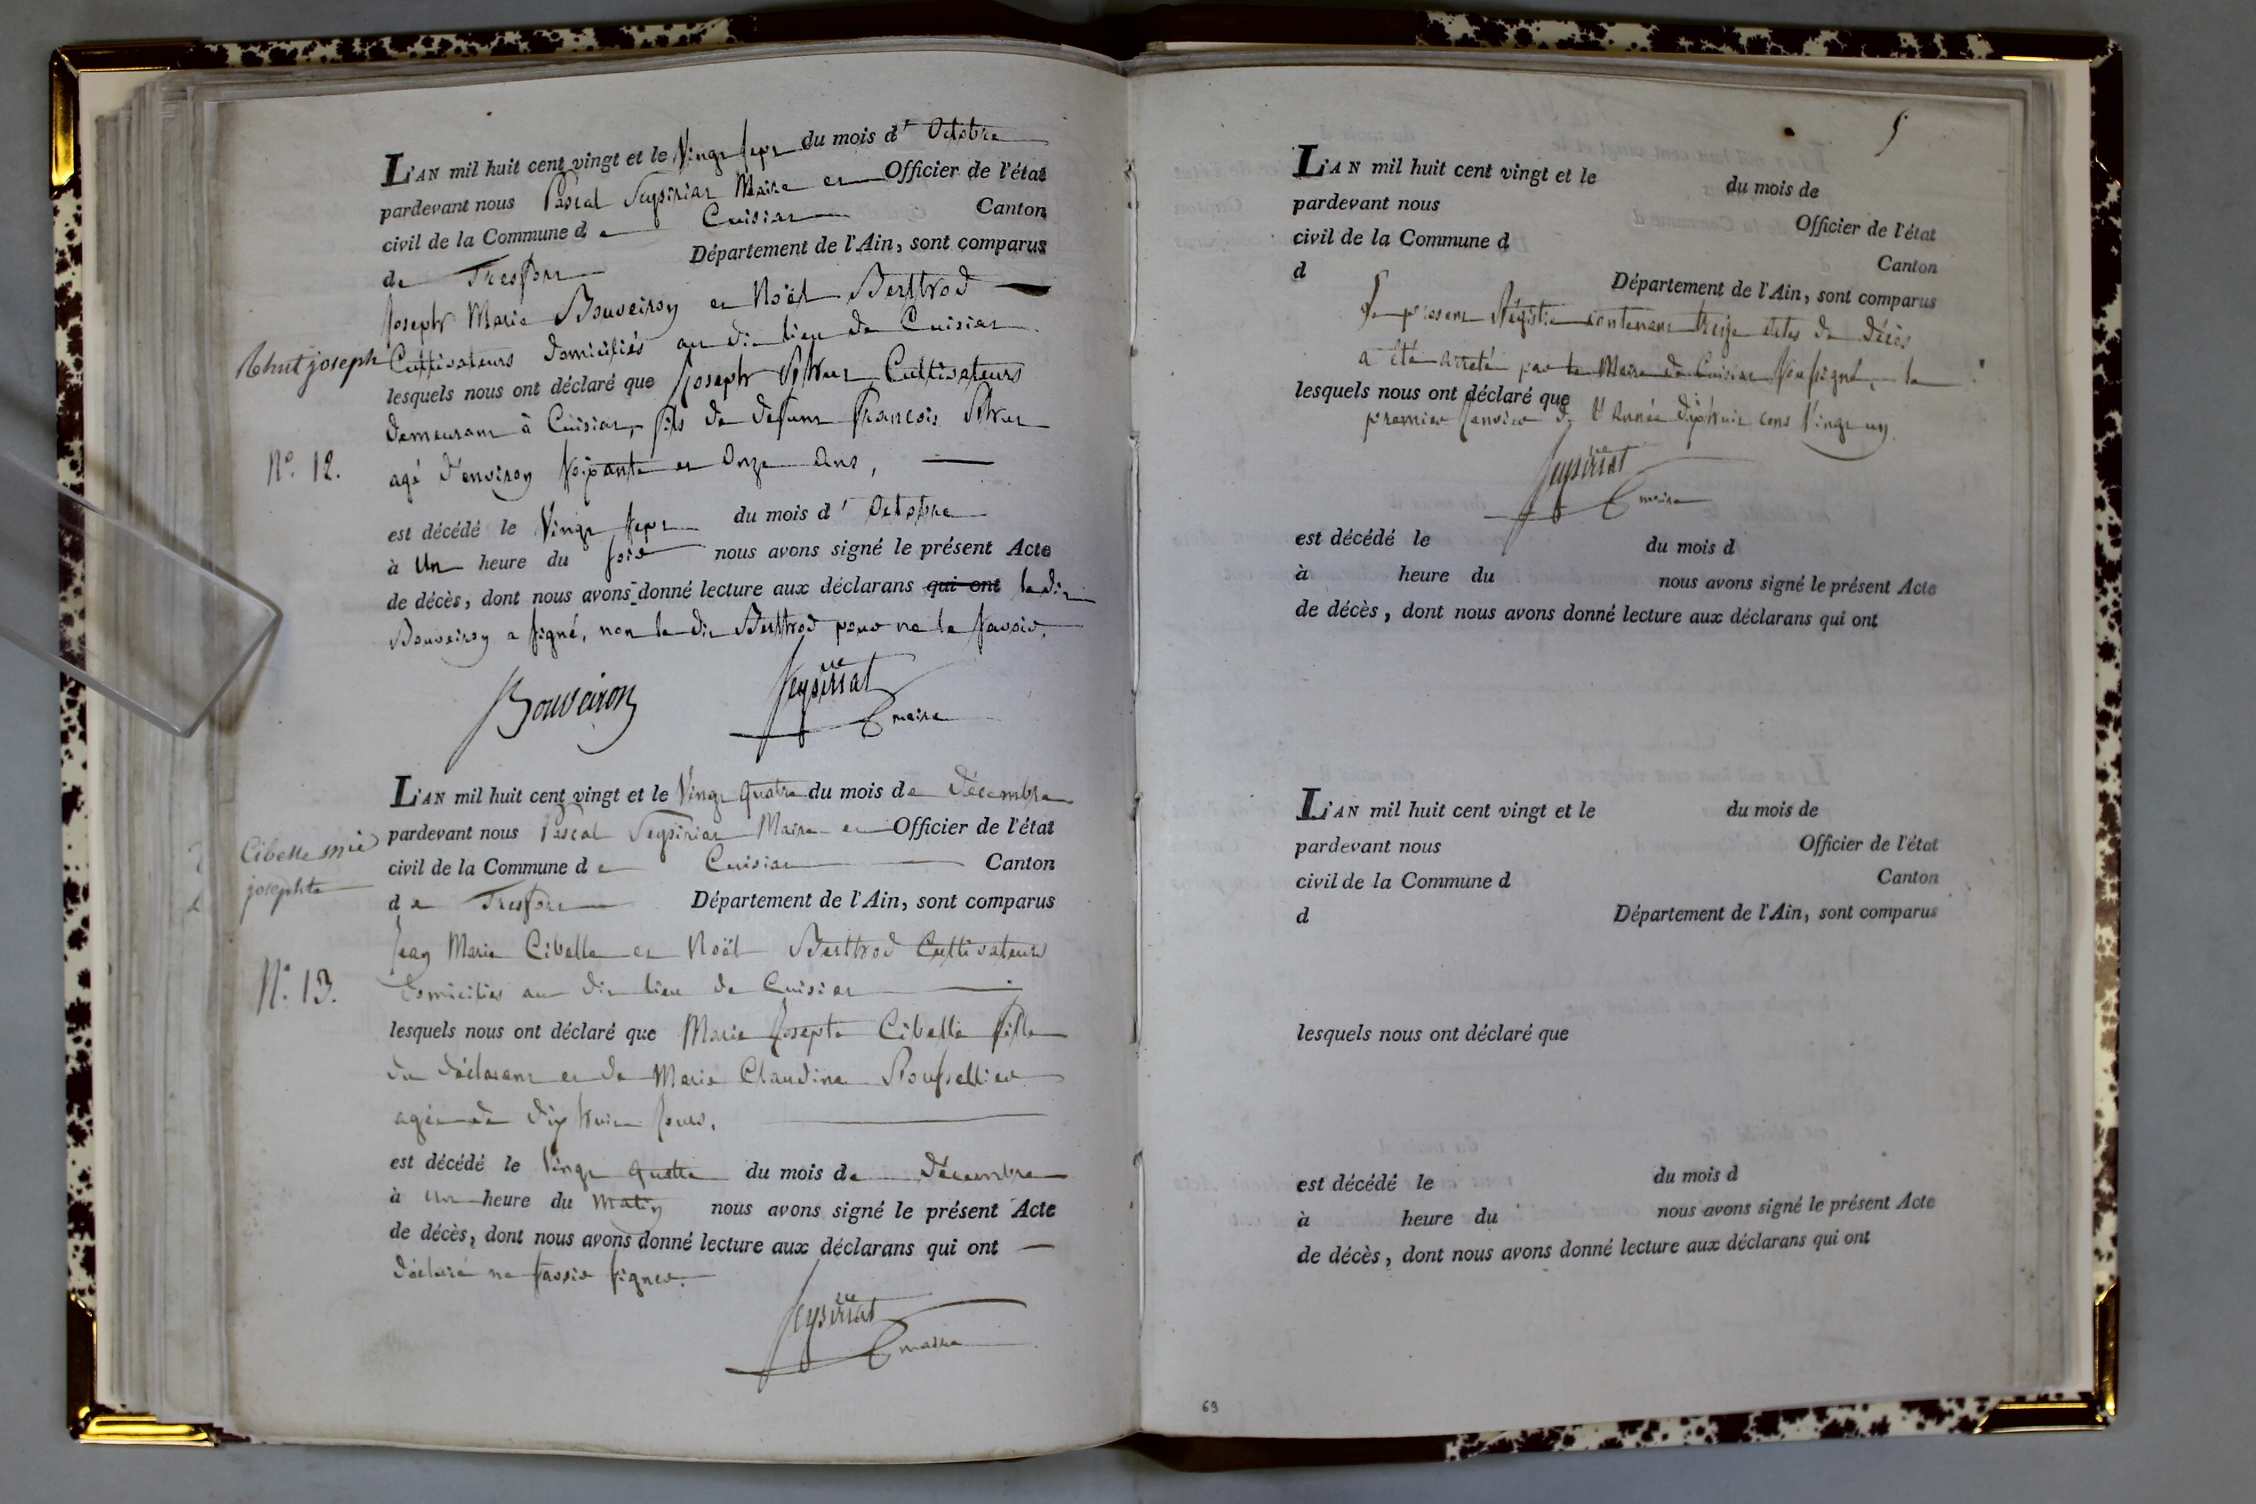 L'AN mil huit cent vingt et le Vingt sept du mois d' Octobre
pardevant nous Pascal Seysiriat Maire et Officier de l'état
civil de la Commune de Cuisiat Canton
de Tresfort Département de l'Ain, sont comparus
Joseph Marie Bouveiron et Noël Berthod
Cultivateurs domiciliés au dit lieu de Cuisiat
lesquels nous ont déclaré que Joseph Cultivateurs
demeurant à Cuisiat, fils de defunt François
agé d'environ Soixante et Onze Ans,
est décédé le Vingt sept du mois d' Octobre
à Un heure du soir nous avons signé le présent Acte
de décès, dont nous avons donné lecture aux déclarans qui ont le dit
Bouveiron a signé, non le dit Berthod pour ne le savoir.
joseph
N.o 12.
Bouveiron Seysiriat
maire
L'AN mil huit cent vingt et le Vingt quatre du mois de Décembre
pardevant nous Pascal Seysiriat Maire et Officier de l'état
civil de la Commune de Cuisiat Canton
de Tresfort Département de l'Ain, sont comparus
Jean Marie Cibelle et Noël Berthod Cultivateurs
domiciliés au dit lieu de Cuisiat
lesquels nous ont déclaré que Marie Josepte Cibelle fille
du déclarant et de Marie Claudine Roussellier
agée de dix huit jours.
est décédé le Vingt quatre du mois de Décembre
à Un heure du Matin nous avons signé le présent Acte
de décès, dont nous avons donné lecture aux déclarans qui ont
déclaré ne savoir signer.
Cibelle mie
josephte
N.o 13.
Seysiriat
maire
5
L'AN mil huit cent vingt et le du mois de
pardevant nous Officier de l'état
civil de la Commune d Canton
d Département de l'Ain, sont comparus
Le présent Régistre contenant treize actes de décès
a été arreté par le Maire de Cuisiat soussigné, le
lesquels nous ont déclaré que
premier Janvier de l'Année dix huit cent vingt un.
Seysiriat
maire
est décédé le du mois d
à heure du nous avons signé le présent Acte
de décès, dont nous avons donné lecture aux déclarans qui ont
L'AN mil huit cent vingt et le du mois de
pardevant nous Officier de l'état
civil de la Commune d Canton
d Département de l'Ain, sont comparus
lesquels nous ont déclaré que
est décédé le du mois d
à heure du nous avons signé le présent Acte
de décès, dont nous avons donné lecture aux déclarans qui ont
69